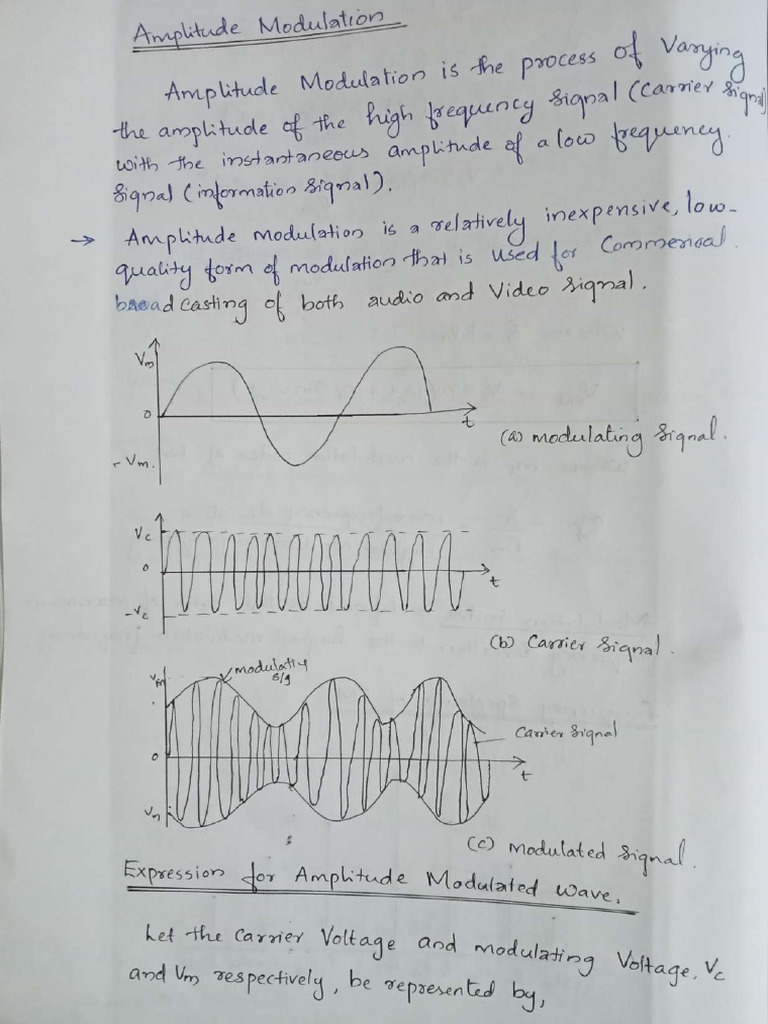 Amplitude Modulation
Amplitude Modulation is the process of Varying
the amplitude of the high frequency signal (Carrier signal)
with the instantaneous amplitude of a low frequency.
signal (information signal).
→ Amplitude modulation is a relatively inexpensive, low-
quality form of modulation that is used for Commerical.
broadcasting of both audio and Video signal.
Vm
0
- Vm.
t
(a) modulating signal.
Vc
0
-Vc
t
(b) Carrier signal.
modulatig
s/g
Vm
Carrier signal
0
t
Vm
(c) modulated signal.
Expression for Amplitude Modulated wave.
Let the carrier Voltage and modulating Voltage, Vc
and Vm respectively, be represented by,